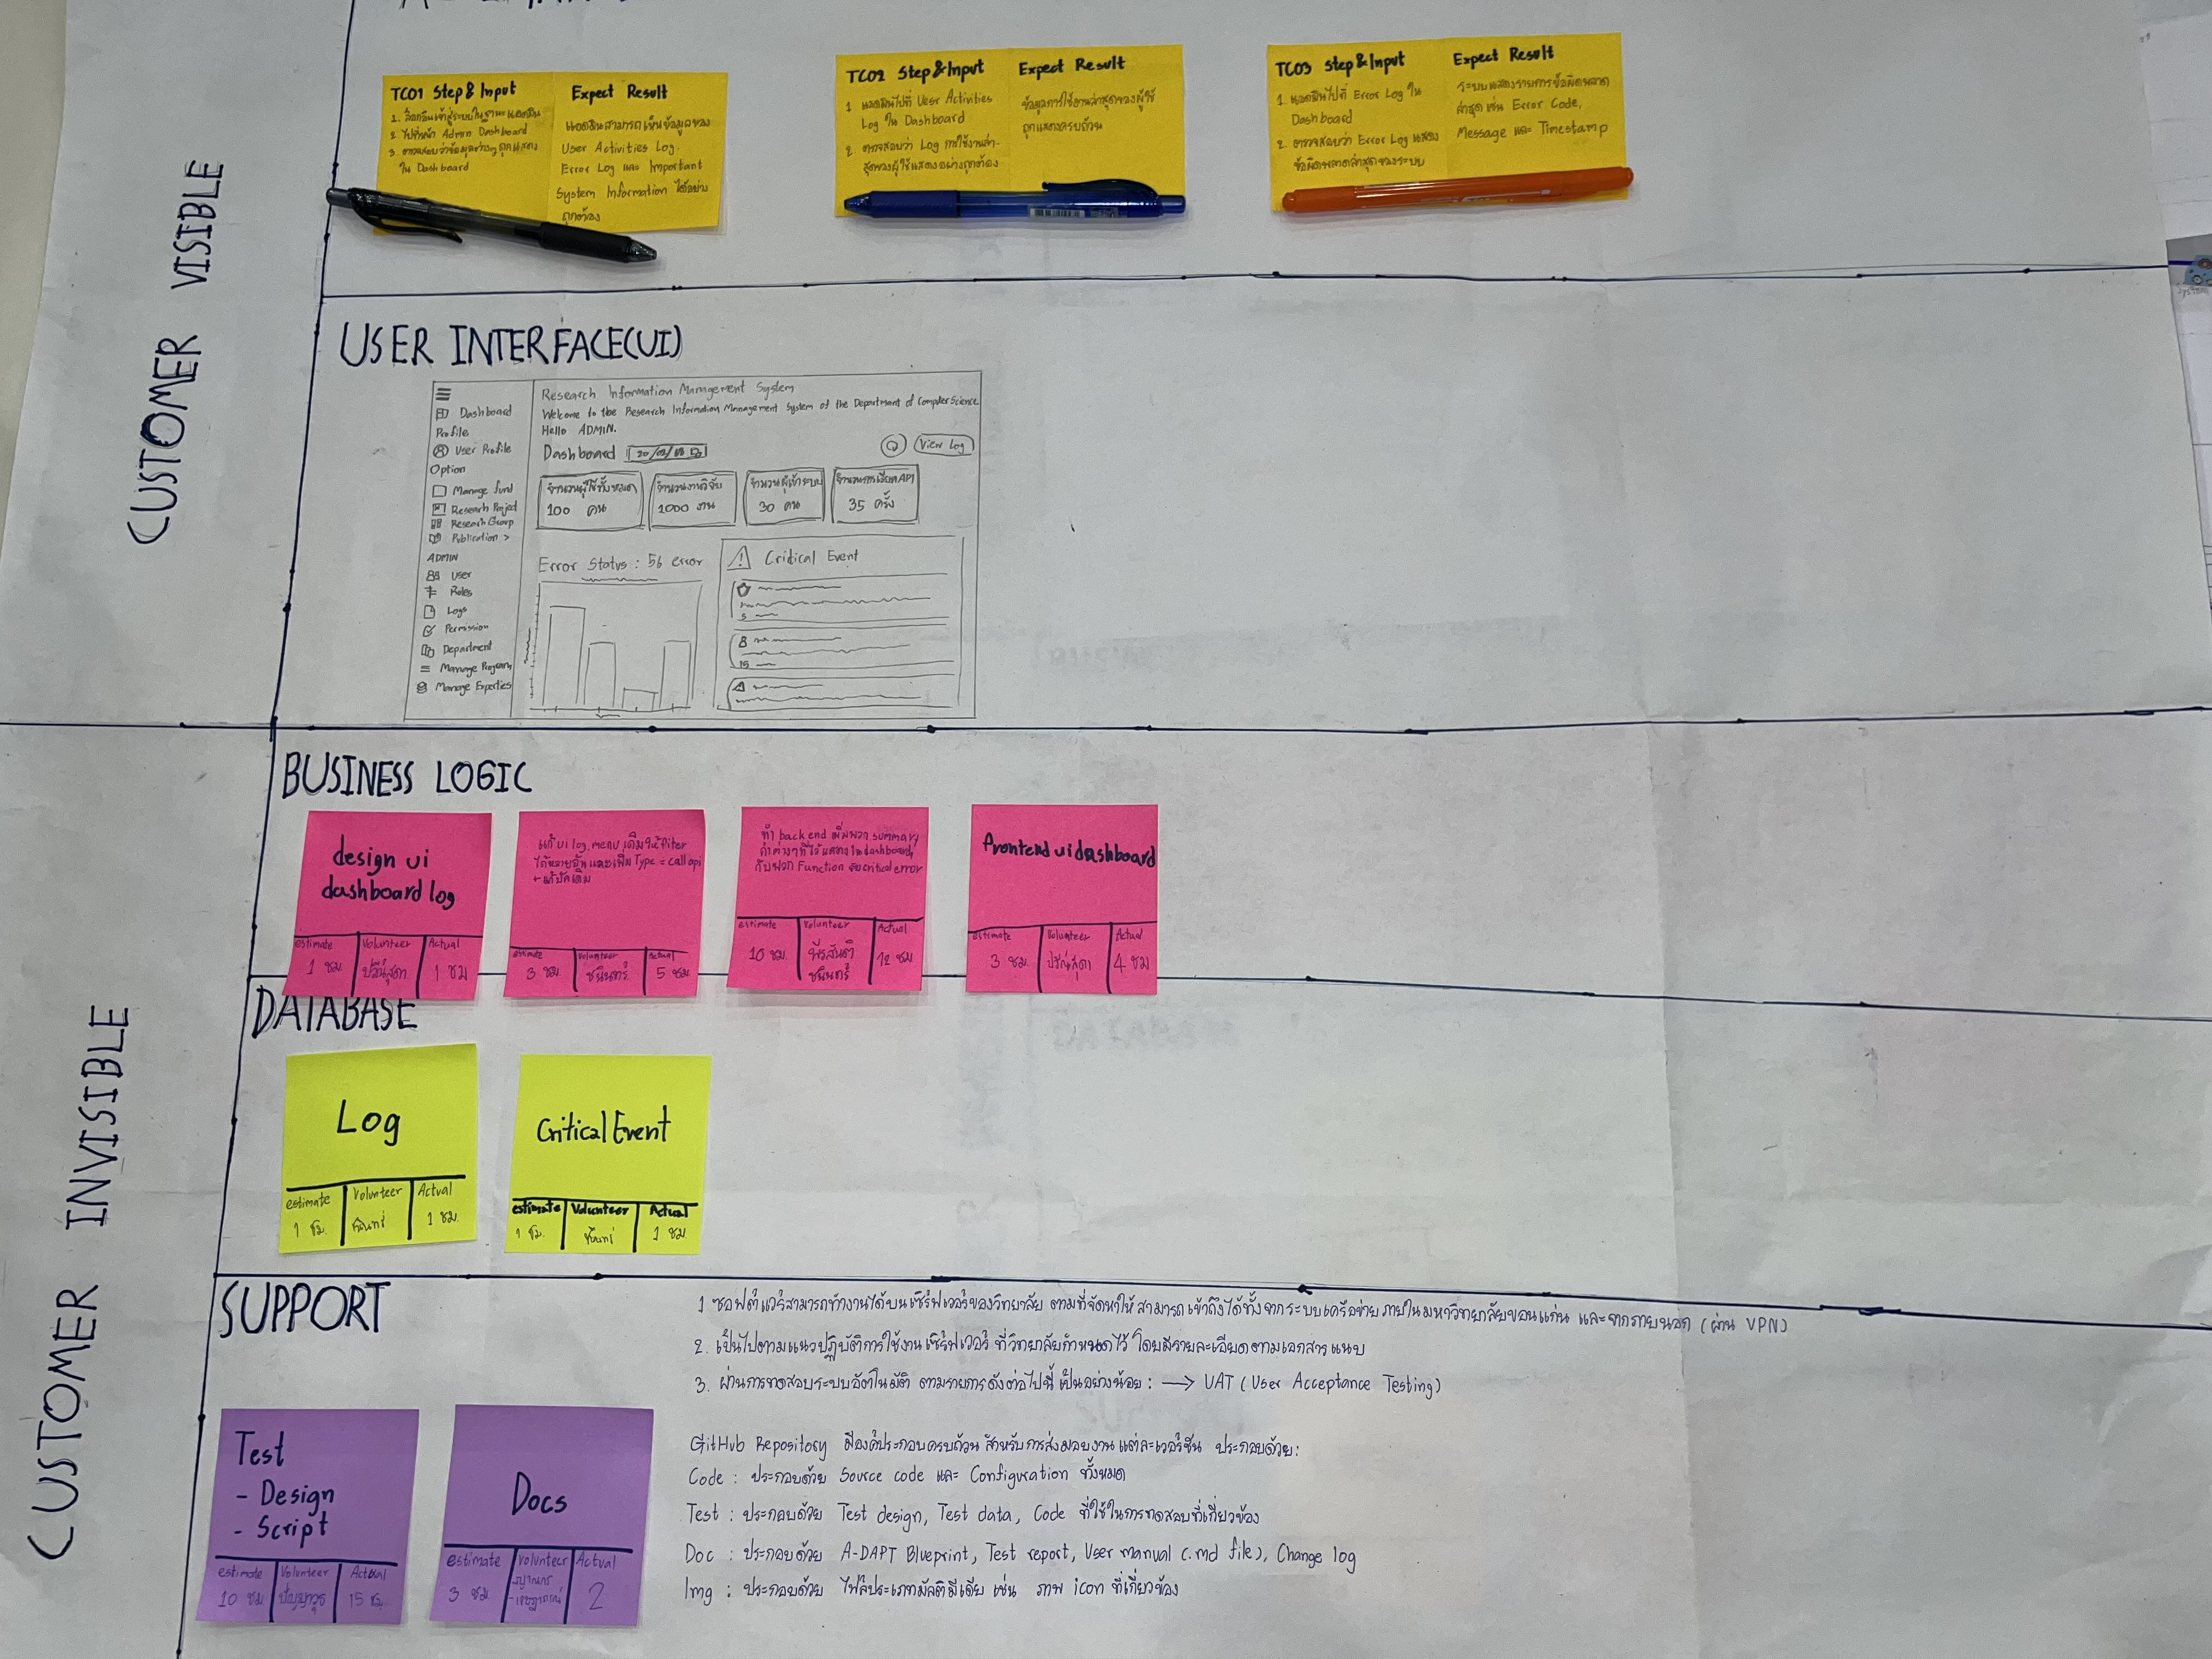 TC01 Step & Input
1. ล็อกอินเข้าสู่ระบบในฐานะแอดมิน
2. ไปที่หน้า Admin Dashboard
3. ตรวจสอบว่าข้อมูลต่างๆถูกแสดง
ใน Dashboard
Expect Result
แอดมินสามารถเห็นข้อมูลของ
User Activities Log.
Error Log และ Important
System Information ได้อย่าง
ถูกต้อง
TC02 Step & Input
1. แอดมินไปที่ User Activities
Log ใน Dashboard
2. ตรวจสอบว่า Log การใช้งานล่า-
สุดของผู้ใช้แสดงอย่างถูกต้อง
Expect Result
ข้อมูลการใช้งานล่าสุดของผู้ใช้
ถูกแสดงครบถ้วน
TC03 Step & Input
1. แอดมินไปที่ Error Log ใน
Dashboard
2. ตรวจสอบว่า Error Log แสดง
ข้อผิดพลาดล่าสุดของระบบ
Expect Result
ระบบแสดงรายการข้อผิดพลาด
ล่าสุด เช่น Error Code,
Message และ Timestamp
CUSTOMER VISIBLE
USER INTERFACE(UI)
Dashboard
Profile
User Profile
Option
Manage fund
Research Project
Research Group
Publication >
ADMIN
User
Roles
Logs
Permission
Department
Manage Program
Manage Experties
Research Information Management System
Welcome to the Research Information Management System of the Department of Computer Science
Hello ADMIN.
Dashboard
View Log
จำนวนผู้ใช้ทั้งหมด
100 คน
จำนวนงานวิจัย
1000 งาน
จำนวนผู้เข้าระบบ
30 คน
จำนวนการเรียก API
35 ครั้ง
Error Status : 56 error
Critical Event
CUSTOMER INVISIBLE
BUSINESS LOGIC
design ui
dashboard log
estimate Volunteer Actual
1 ชม. ปวีณ์สุดา 1 ชม
แก้ ui log, menu เดิมให้ filter
ได้หลายอัน และเพิ่ม Type = call api
+ แก้บัคเดิม
estimate Volunteer Actual
3 ชม. ชนินทร์ 5 ชม
ทำ backend เพิ่มพวก summary
ค่าต่างๆที่ไว้แสดงใน dashboard,
กับพวก Function ของ critical error
estimate Volunteer Actual
10 ชม พีรสันติ 12 ชม
ชนินทร์
frontend ui dashboard
estimate Volunteer Actual
3 ชม 4 ชม
DATABASE
Log
estimate Volunteer Actual
1 ชม. ชนินทร์ 1 ชม.
Critical Event
estimate Volunteer Actual
1 ชม. ชนินทร์ 1 ชม
SUPPORT
1 ซอฟต์แวร์สามารถทำงานได้บนเซิร์ฟเวอร์ของวิทยาลัย ตามที่จัดหาให้ สามารถเข้าถึงได้ทั้งจากระบบเครือข่ายภายในมหาวิทยาลัยขอนแก่น และจากภายนอก (ผ่าน VPN)
2. เป็นไปตามแนวปฏิบัติการใช้งานเซิร์ฟเวอร์ ที่วิทยาลัยกำหนดไว้ โดยมีรายละเอียดตามเอกสารแนบ
3. ผ่านการทดสอบระบบอัตโนมัติ ตามรายการดังต่อไปนี้ เป็นอย่างน้อย : → UAT (User Acceptance Testing)
GitHub Repository มีองค์ประกอบครบถ้วน สำหรับการส่งมอบงานแต่ละเวอร์ชัน ประกอบด้วย:
Code : ประกอบด้วย Source code และ Configuration ทั้งหมด
Test : ประกอบด้วย Test design, Test data, Code ที่ใช้ในการทดสอบที่เกี่ยวข้อง
Doc : ประกอบด้วย A-DAPT Blueprint, Test report, User manual (.md file), Change log
Img : ประกอบด้วย ไฟล์ประเภทมัลติมีเดีย เช่น ภาพ icon ที่เกี่ยวข้อง
Test
- Design
- Script
estimate Volunteer Actual
10 ชม ปัญญาวุธ 15 ชม.
Docs
estimate Volunteer Actual
3 ชม 2